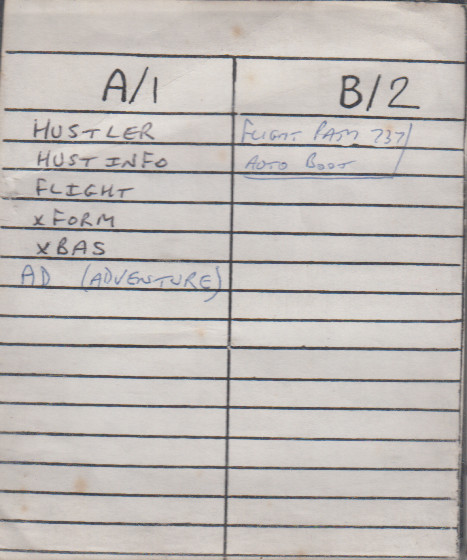 A/1
HUSTLER
HUST INFO
FLIGHT
XFORM
XBAS
AD (ADVENTURE)
B/2
FLIGHT PATH 737
AUTO BOOT